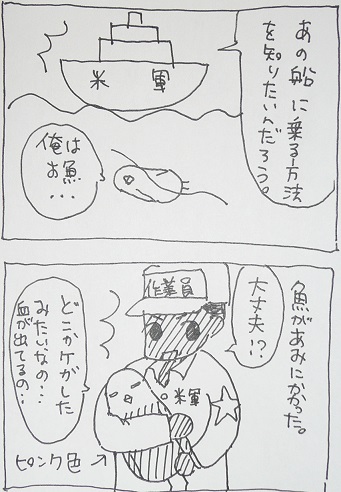 あの船に乗る方法
を知りたいんだろう。
米 軍
俺は
お魚
・・・
魚があみにかかった。
大丈夫!?
作業員
米軍
どこかケガした
みたいなの・・・
血が出てるの・・
ピンク色→